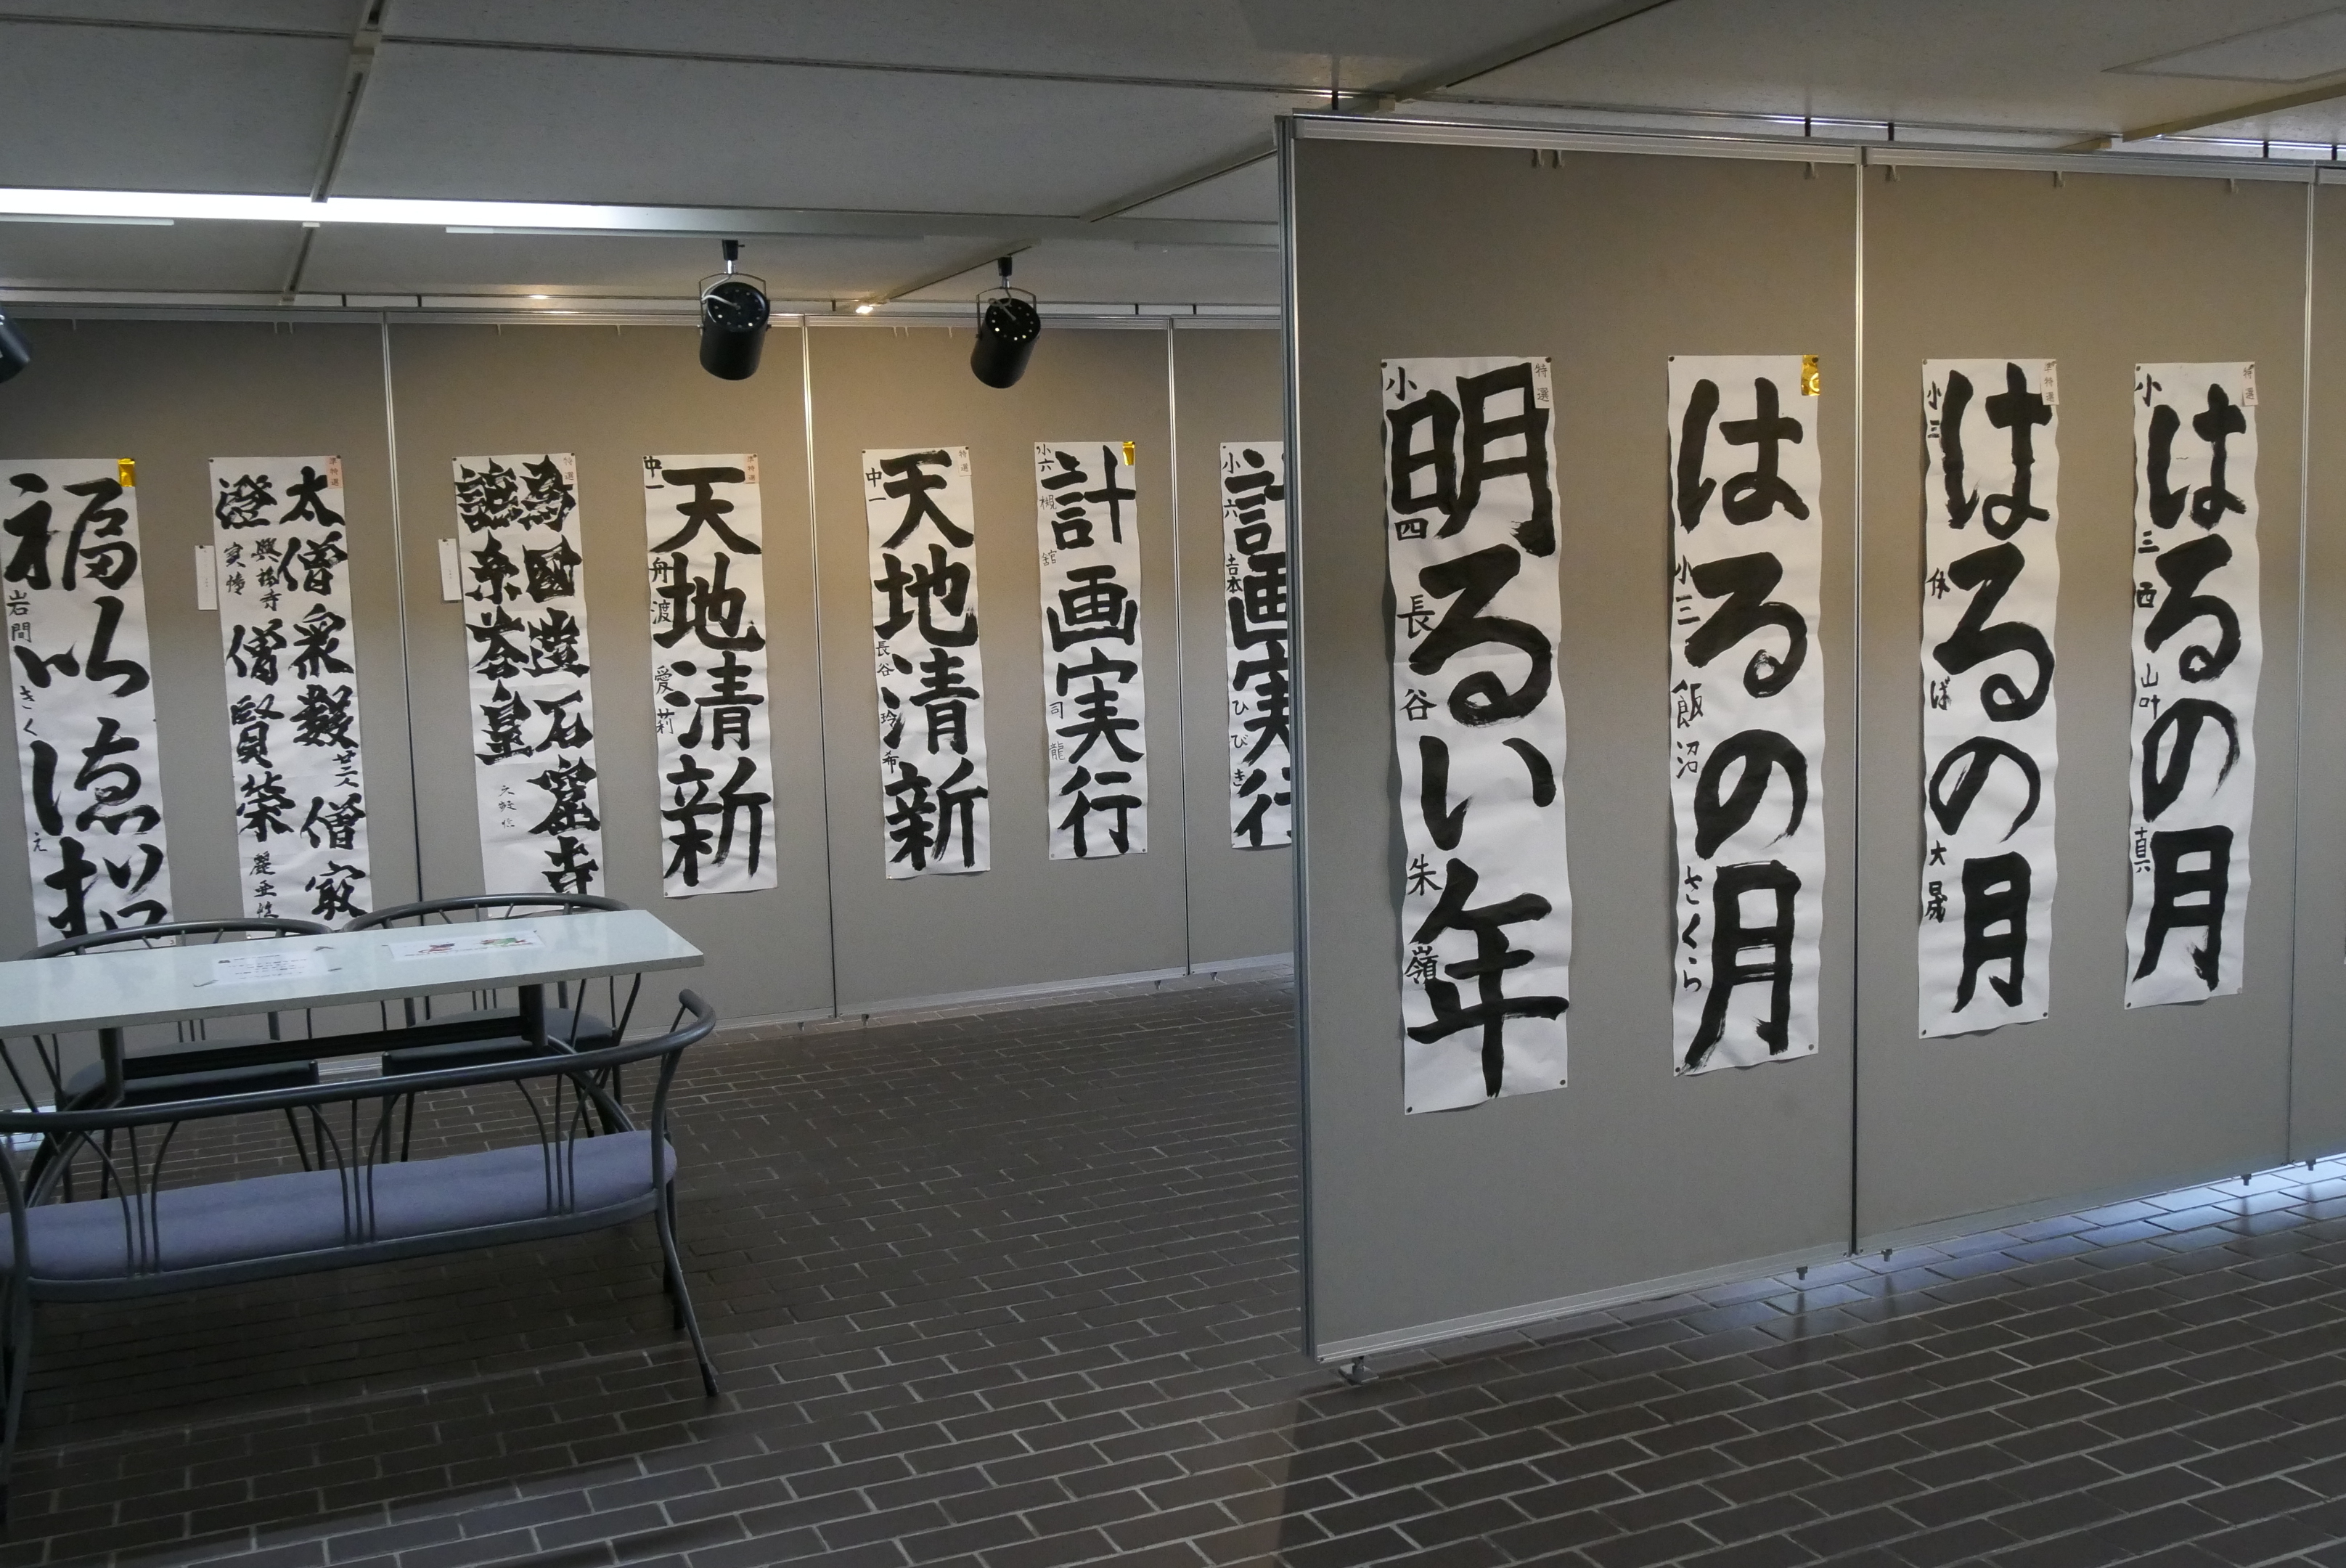 福以徳招
岩間きくえ
太僧衆数廿六僧最
澄
興福寺
実憧
僧賢榮
特選
為國造石窟寺
特選
天地清新
中一
舟渡
愛莉
特選
天地清新
中一
長谷
玲布
計画実行
小六
司龍
計画実行
小六
吉本
ひびき
特選
明るい年
小四
長谷
朱嶺
はるの月
小三
飯沼
さくら
準特選
はるの月
小三
大晟
特選
はるの月
小三
西山
叶真